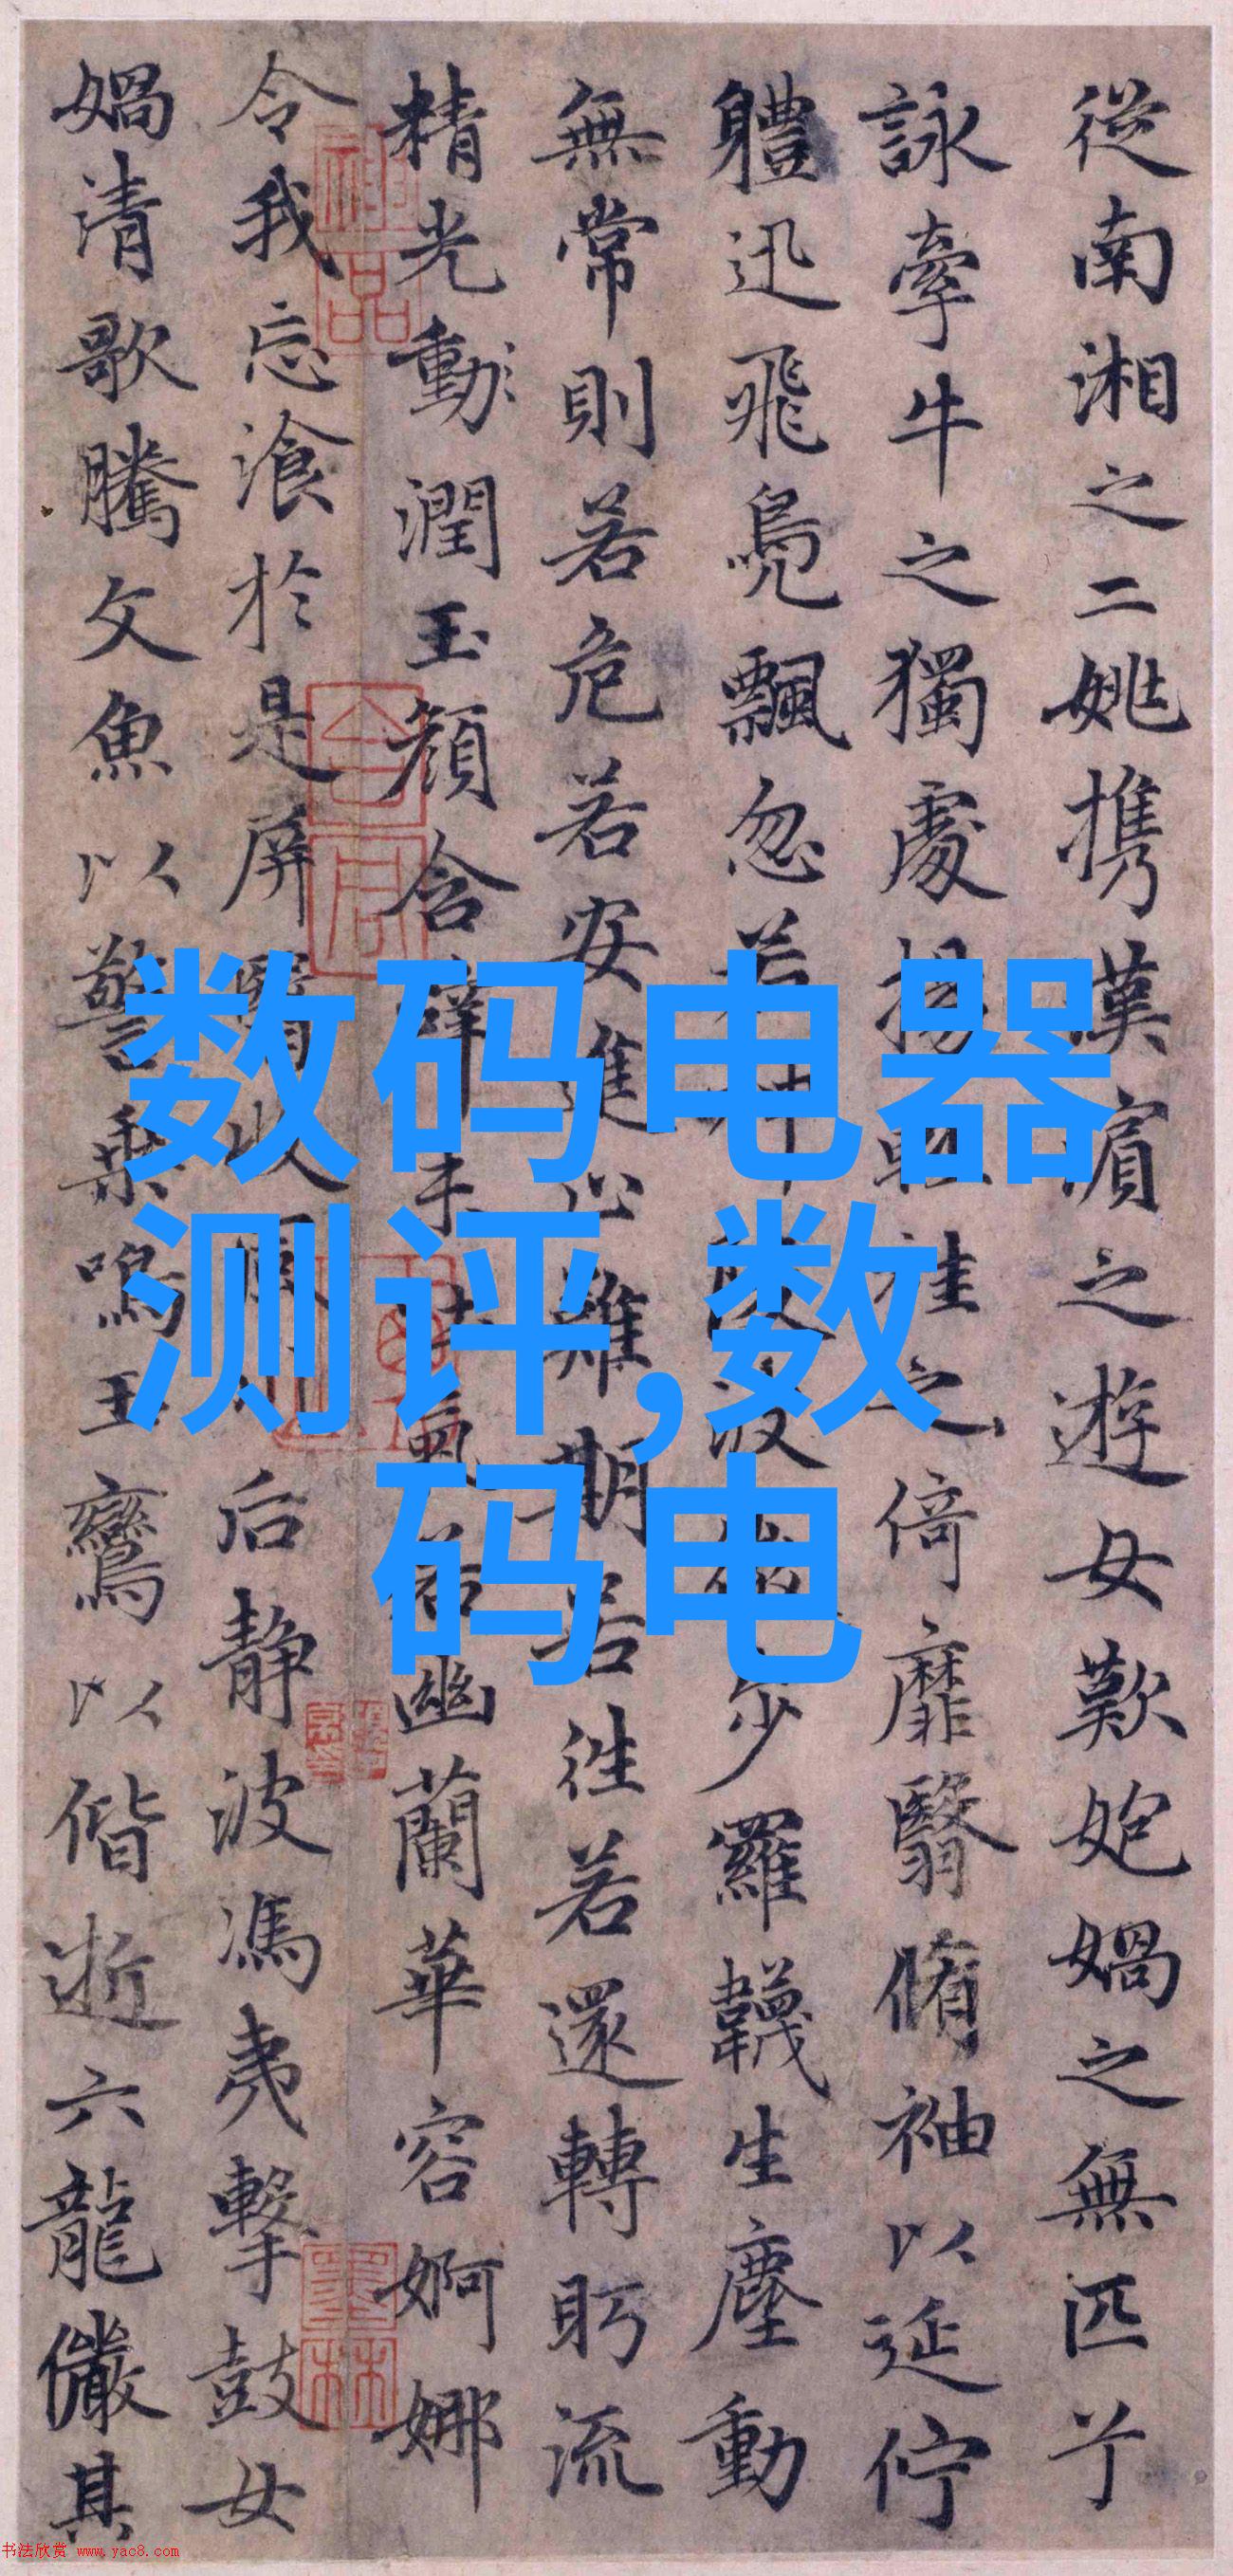 從南湘之二姚携漢濱之遊女歎媧之無匹兮
詠牽牛之獨處揚輕袿之倚靡翳脩袖以延佇
體迅飛鳧飄忽若神陵波微步羅韈生塵動
無常則若危若安進止難期若往若還轉眄流
精光動潤玉顏含辭未吐氣若幽蘭華容婀娜
令我忘飡於是屏翳收風川后靜波馮夷擊鼓女
媧清歌騰文魚以警乘鳴玉鸞以偕逝六龍儼其
数码电器
测评,数
码电
书法欣赏 www.yac8.com